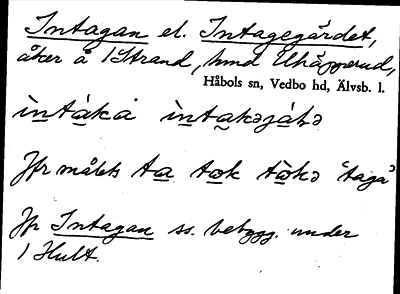 Intagan el. Intagegärdet,
åker å 1 Strand, hmd Uhäpperud,
Håbols sn, Vedbo hd, Älvsb. l.
ìntáka ìntakəjáʈə
Jfr målets ta tok tòkə 'taga'
Jfr Intagan ss. bebygg. under
1 Hult.